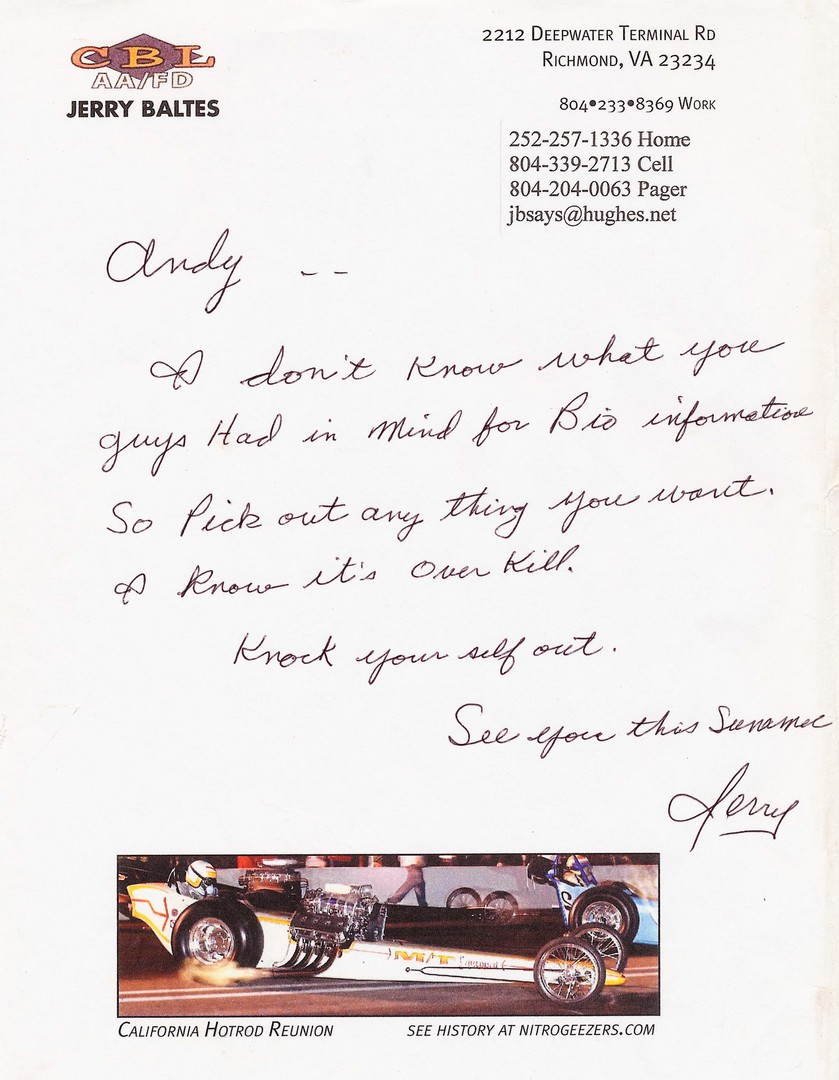 CBL
AA/FD
JERRY BALTES
2212 DEEPWATER TERMINAL RD
RICHMOND, VA 23234
804•233•8369 WORK
252-257-1336 Home
804-339-2713 Cell
804-204-0063 Pager
jbsays@hughes.net
Andy --
I don't know what you
guys Had in Mind for Bio information
So Pick out any thing you want.
I know it's over Kill.
Knock your self out.
See you this Summer
Jerry
M/T
CALIFORNIA HOTROD REUNION
SEE HISTORY AT NITROGEEZERS.COM